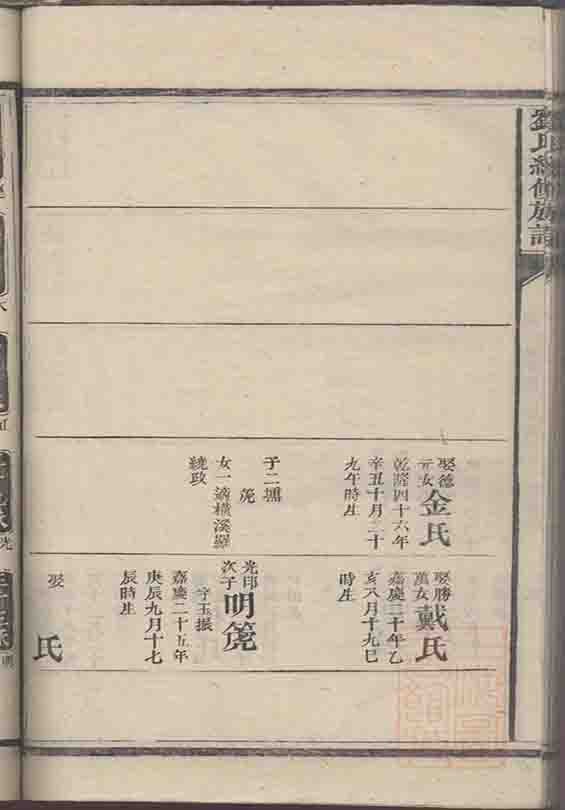 劉氏續修族譜
娶德
元女
金氏
乾隆四十六年
辛丑十月二十
九午時生
子二
女一適橫溪羅
統政
娶勝
萬女
戴氏
嘉慶二十年乙
亥八月十九巳
時生
光印
次子
明箎
字玉振
嘉慶二十五年
庚辰九月十七
辰時生
娶
氏